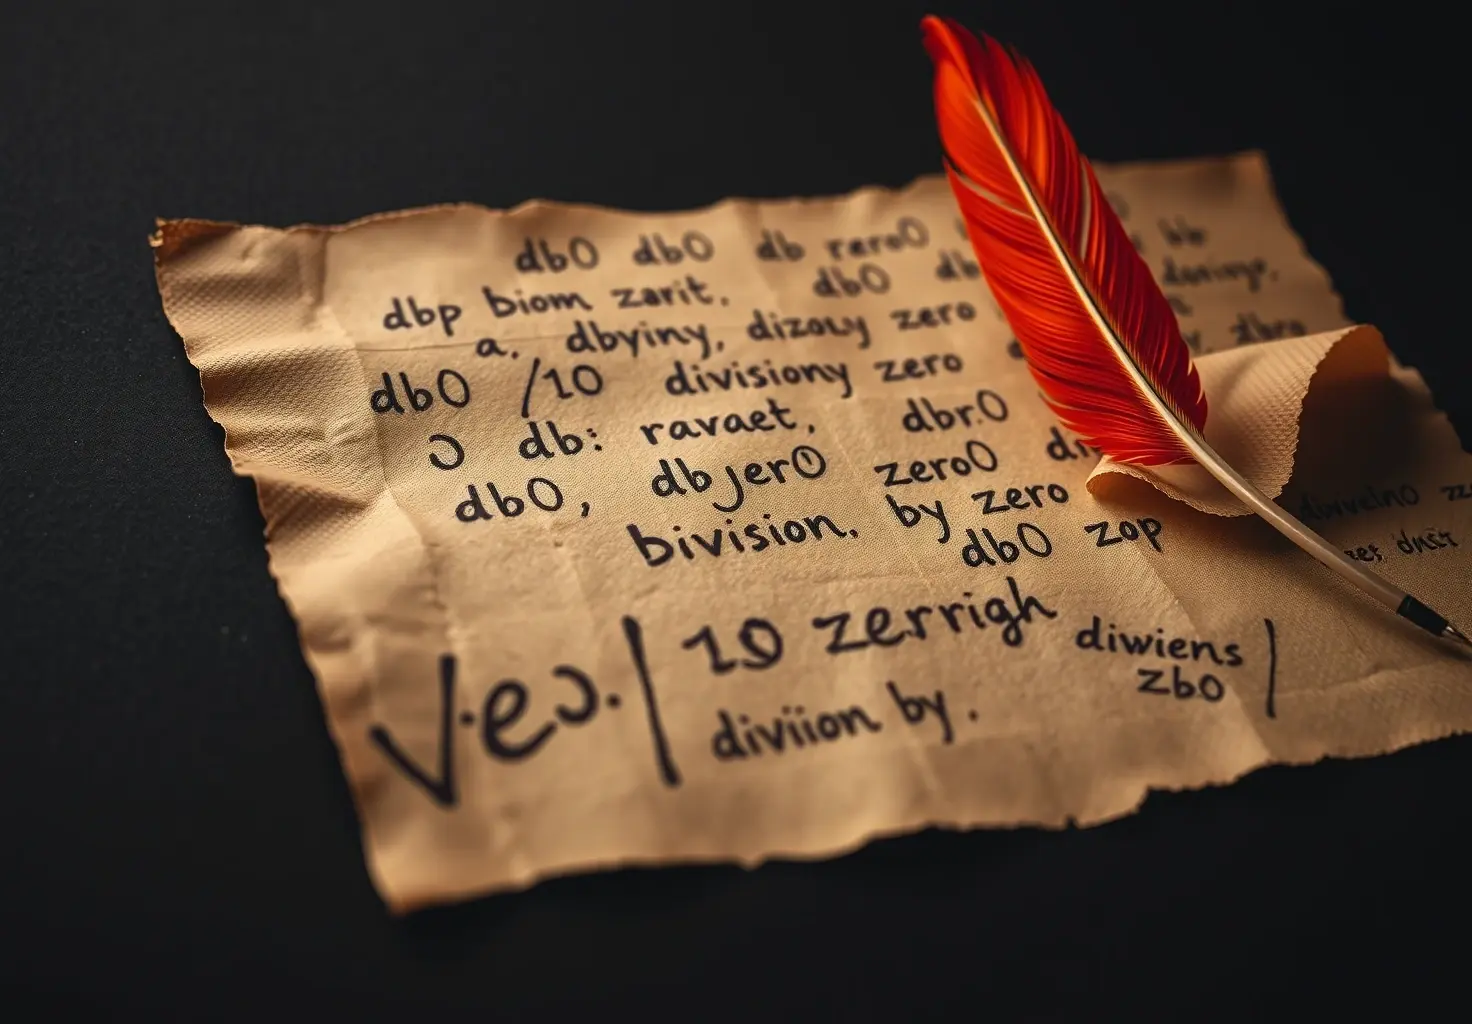 db0 db0 db rero0 bb
dbp biom zarit. db0 db
a. dbyiny, dizouy zero
db0 /10 divisiony zero
Ɔ db: ravaet, dbr.0
db0, dbjer0 zero0
bivision. by zero
db0 zop
V.eɔ. | 10 zerrigh diwiens |
diviion by. zb0